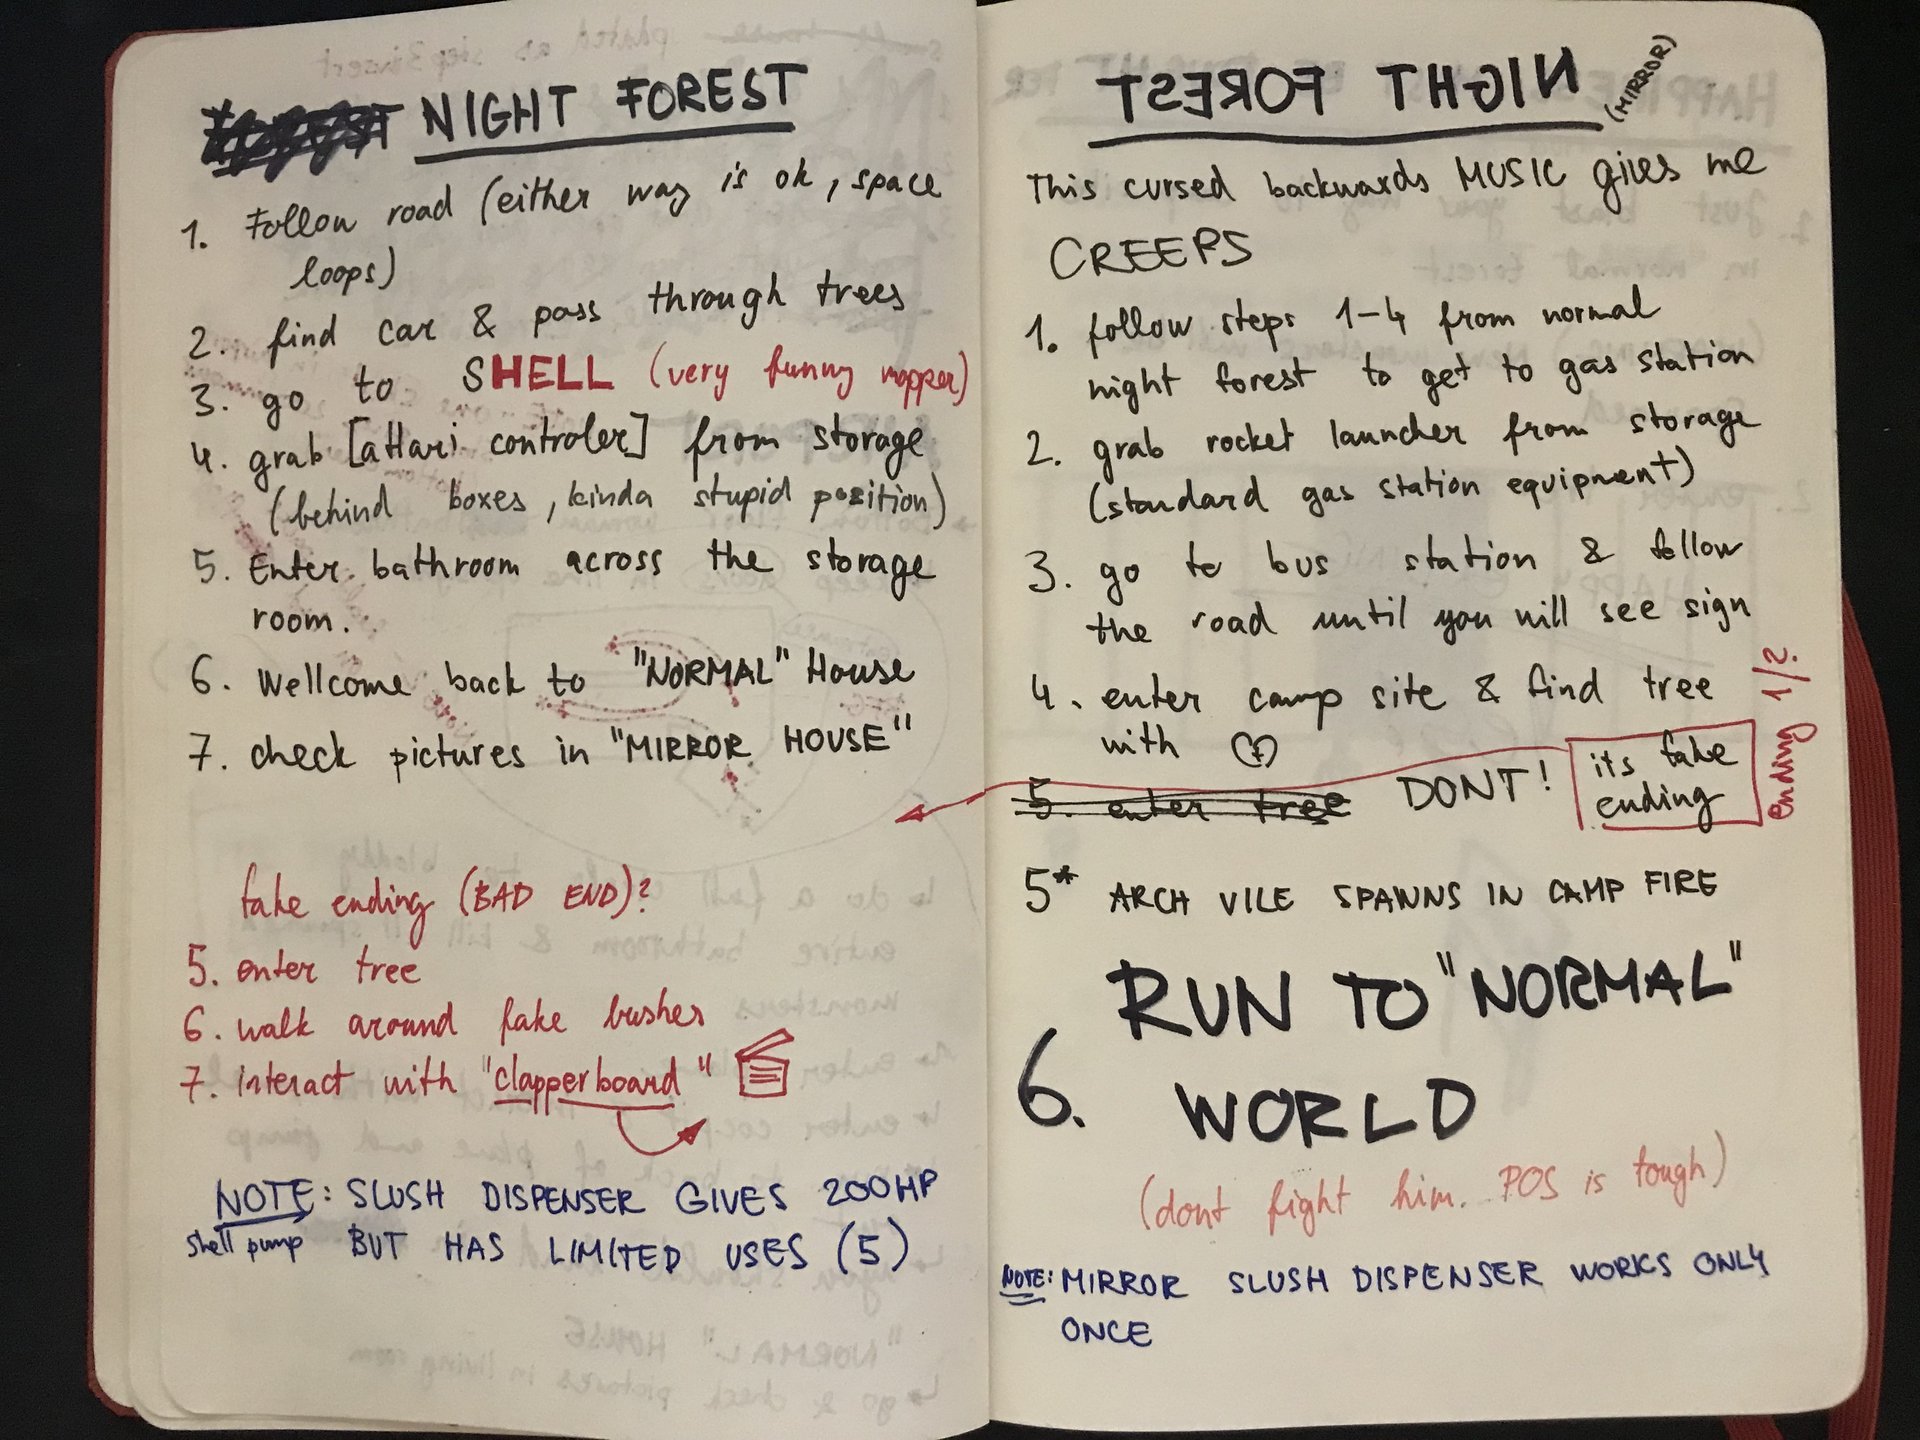 NIGHT FOREST
1. Follow road (either way is ok, space
loops)
2. find car & pass through trees
3. go to SHELL (very funny mapper)
4. grab [attari controler] from storage
(behind boxes, kinda stupid position)
5. Enter bathroom across the storage
room.
6. Wellcome back to "NORMAL" House
7. check pictures in "MIRROR HOUSE"
fake ending (BAD END)?
5. enter tree
6. walk around fake bushes
7. interact with "clapperboard"
NOTE: SLUSH DISPENSER GIVES 200HP
shell pump BUT HAS LIMITED USES (5)
NIGHT FOREST (MIRROR)
This cursed backwards MUSIC gives me
CREEPS
1. follow steps 1-4 from normal
night forest to get to gas station
2. grab rocket launcher from storage
(standard gas station equipment)
3. go to bus station & follow
the road until you will see sign
4. enter camp site & find tree
with
5. enter tree DONT! its fake
ending
ending 1/2?
5* ARCH VILE SPAWNS IN CAMP FIRE
RUN TO "NORMAL"
6. WORLD
(dont fight him. POS is tough)
NOTE: MIRROR SLUSH DISPENSER WORKS ONLY
ONCE